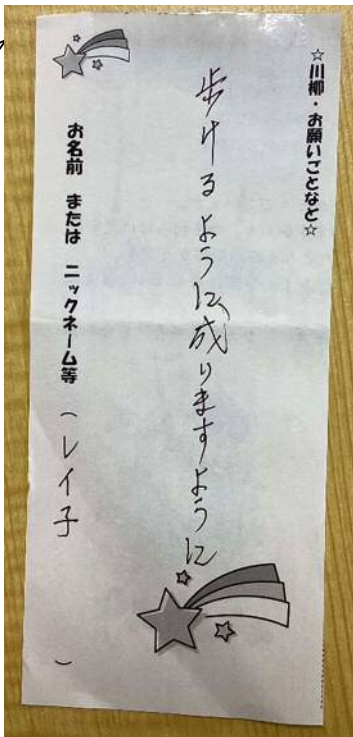 ☆川柳・お願いごとなど☆
歩けるように成りますように
お名前 または ニックネーム等 (レイ子 )